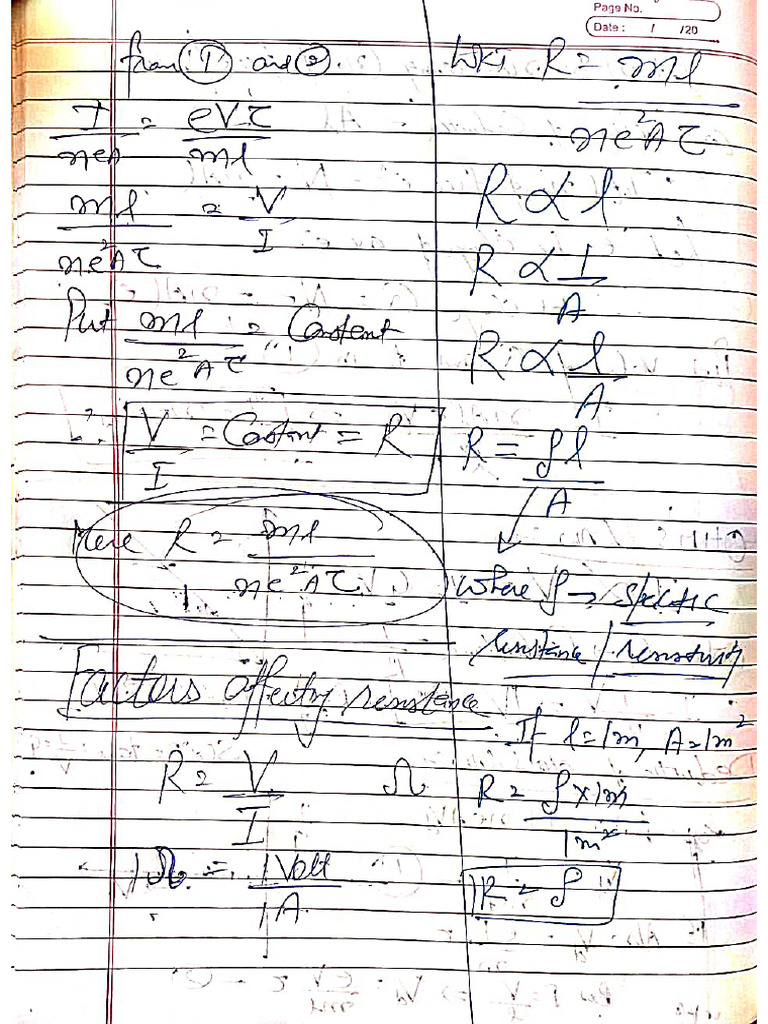 Page No.
Date : / /20
from ① and ②
I/neA = eVτ/ml
ml/ne²Aτ = V/I
Put ml/ne²Aτ = Constent
∴ V/I = Constant = R
Here R = ml/ne²Aτ
Factors affecting resistance
R = V/I Ω
1Ω = 1 Volt/1 A
WKT R = ml/ne²Aτ
R ∝ l
R ∝ 1/A
R ∝ l/A
R = ρl/A
where ρ → specific
resistance / resistivity
If l=1m, A=1m²
R = ρ×1m/1m²
R = ρ